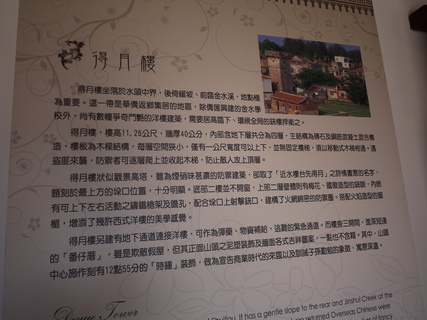 得月樓
得月樓坐落於水頭中界，後倚矸坡、前臨金水溪，地點極
為重要。這一帶是華僑返鄉集居的地區，除僑匯興建的金水學
校外，尚有數幢爭奇鬥艷的洋樓建築，需要居高臨下、環視全局的銃樓捍衛之。
得月樓，樓高11.26公尺，牆厚40公分，內部含地下層共分為四層，主結構為磚石及鋼筋混凝土混合構
造，樓板為木樑結構，每層空間狹小，僅有一公尺寬度可以上下，並無固定樓梯，須以移動式木梯相通。遇
盜匪來襲，防禦者可逐層爬上並收起木梯，防止敵人攻上頂層。
得月樓形狀似觀景高塔，聽為煙硝味甚濃的防禦建築，卻取了「近水樓台先得月」之詩情畫意的名字，
題刻於最上方的垛口位置，十分明顯。底部二樓並不開窗，上部二層壁體則有梅花、國徽造型的銃眼，內嵌
有可上下左右活動之鑄鐵槍架及瞄孔，配合垛口上射擊銃口，建構了火網綿密的防禦圈。搭配火焰造型的窗
楣，增添了幾許西式洋樓的美學感覺。
得月樓另建有地下通道連接洋樓，可作為彈藥、物資補給、逃難的緊急通道。而樓旁三開間、進深短淺
的「番仔厝」，雖是欺敵假屋，但其正面山頭之泥塑裝飾及牆面各式吉祥圖案，一點也不含糊。其中，山頭
中心施作刻有12點55分的「時鐘」裝飾，做為宣告商業時代的來臨以及訓誡子孫勤勉的象徵，寓意深遠。
Deyue Tower
It has a gentle slope to the rear and Jinshui Creek at the
returned Overseas Chinese were